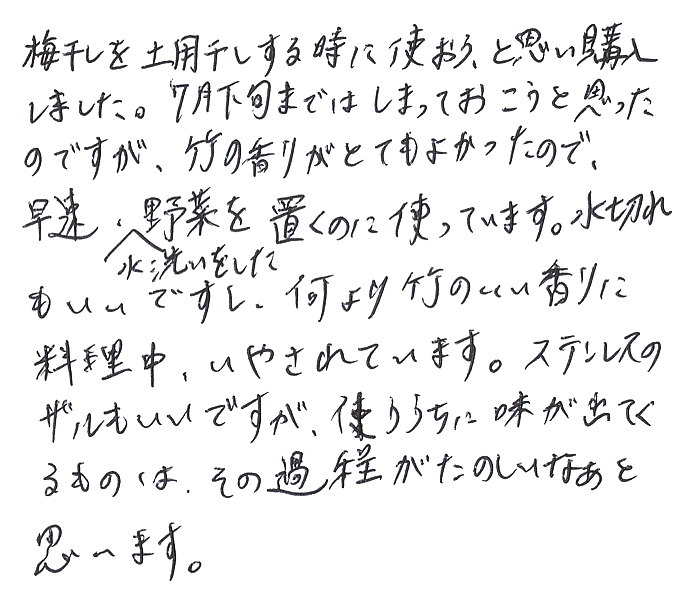 梅干しを土用干しする時に使おう、と思い購入
しました。7月下旬まではしまっておこうと思った
のですが、竹の香りがとてもよかったので、
早速、水洗いをした野菜を置くのに使っています。水切れ
もいいですし、何より竹のいい香りに
料理中、いやされています。ステンレスの
ザルもいいですが、使ううちに味が出てく
るものは、その過程がたのしいなぁと
思います。